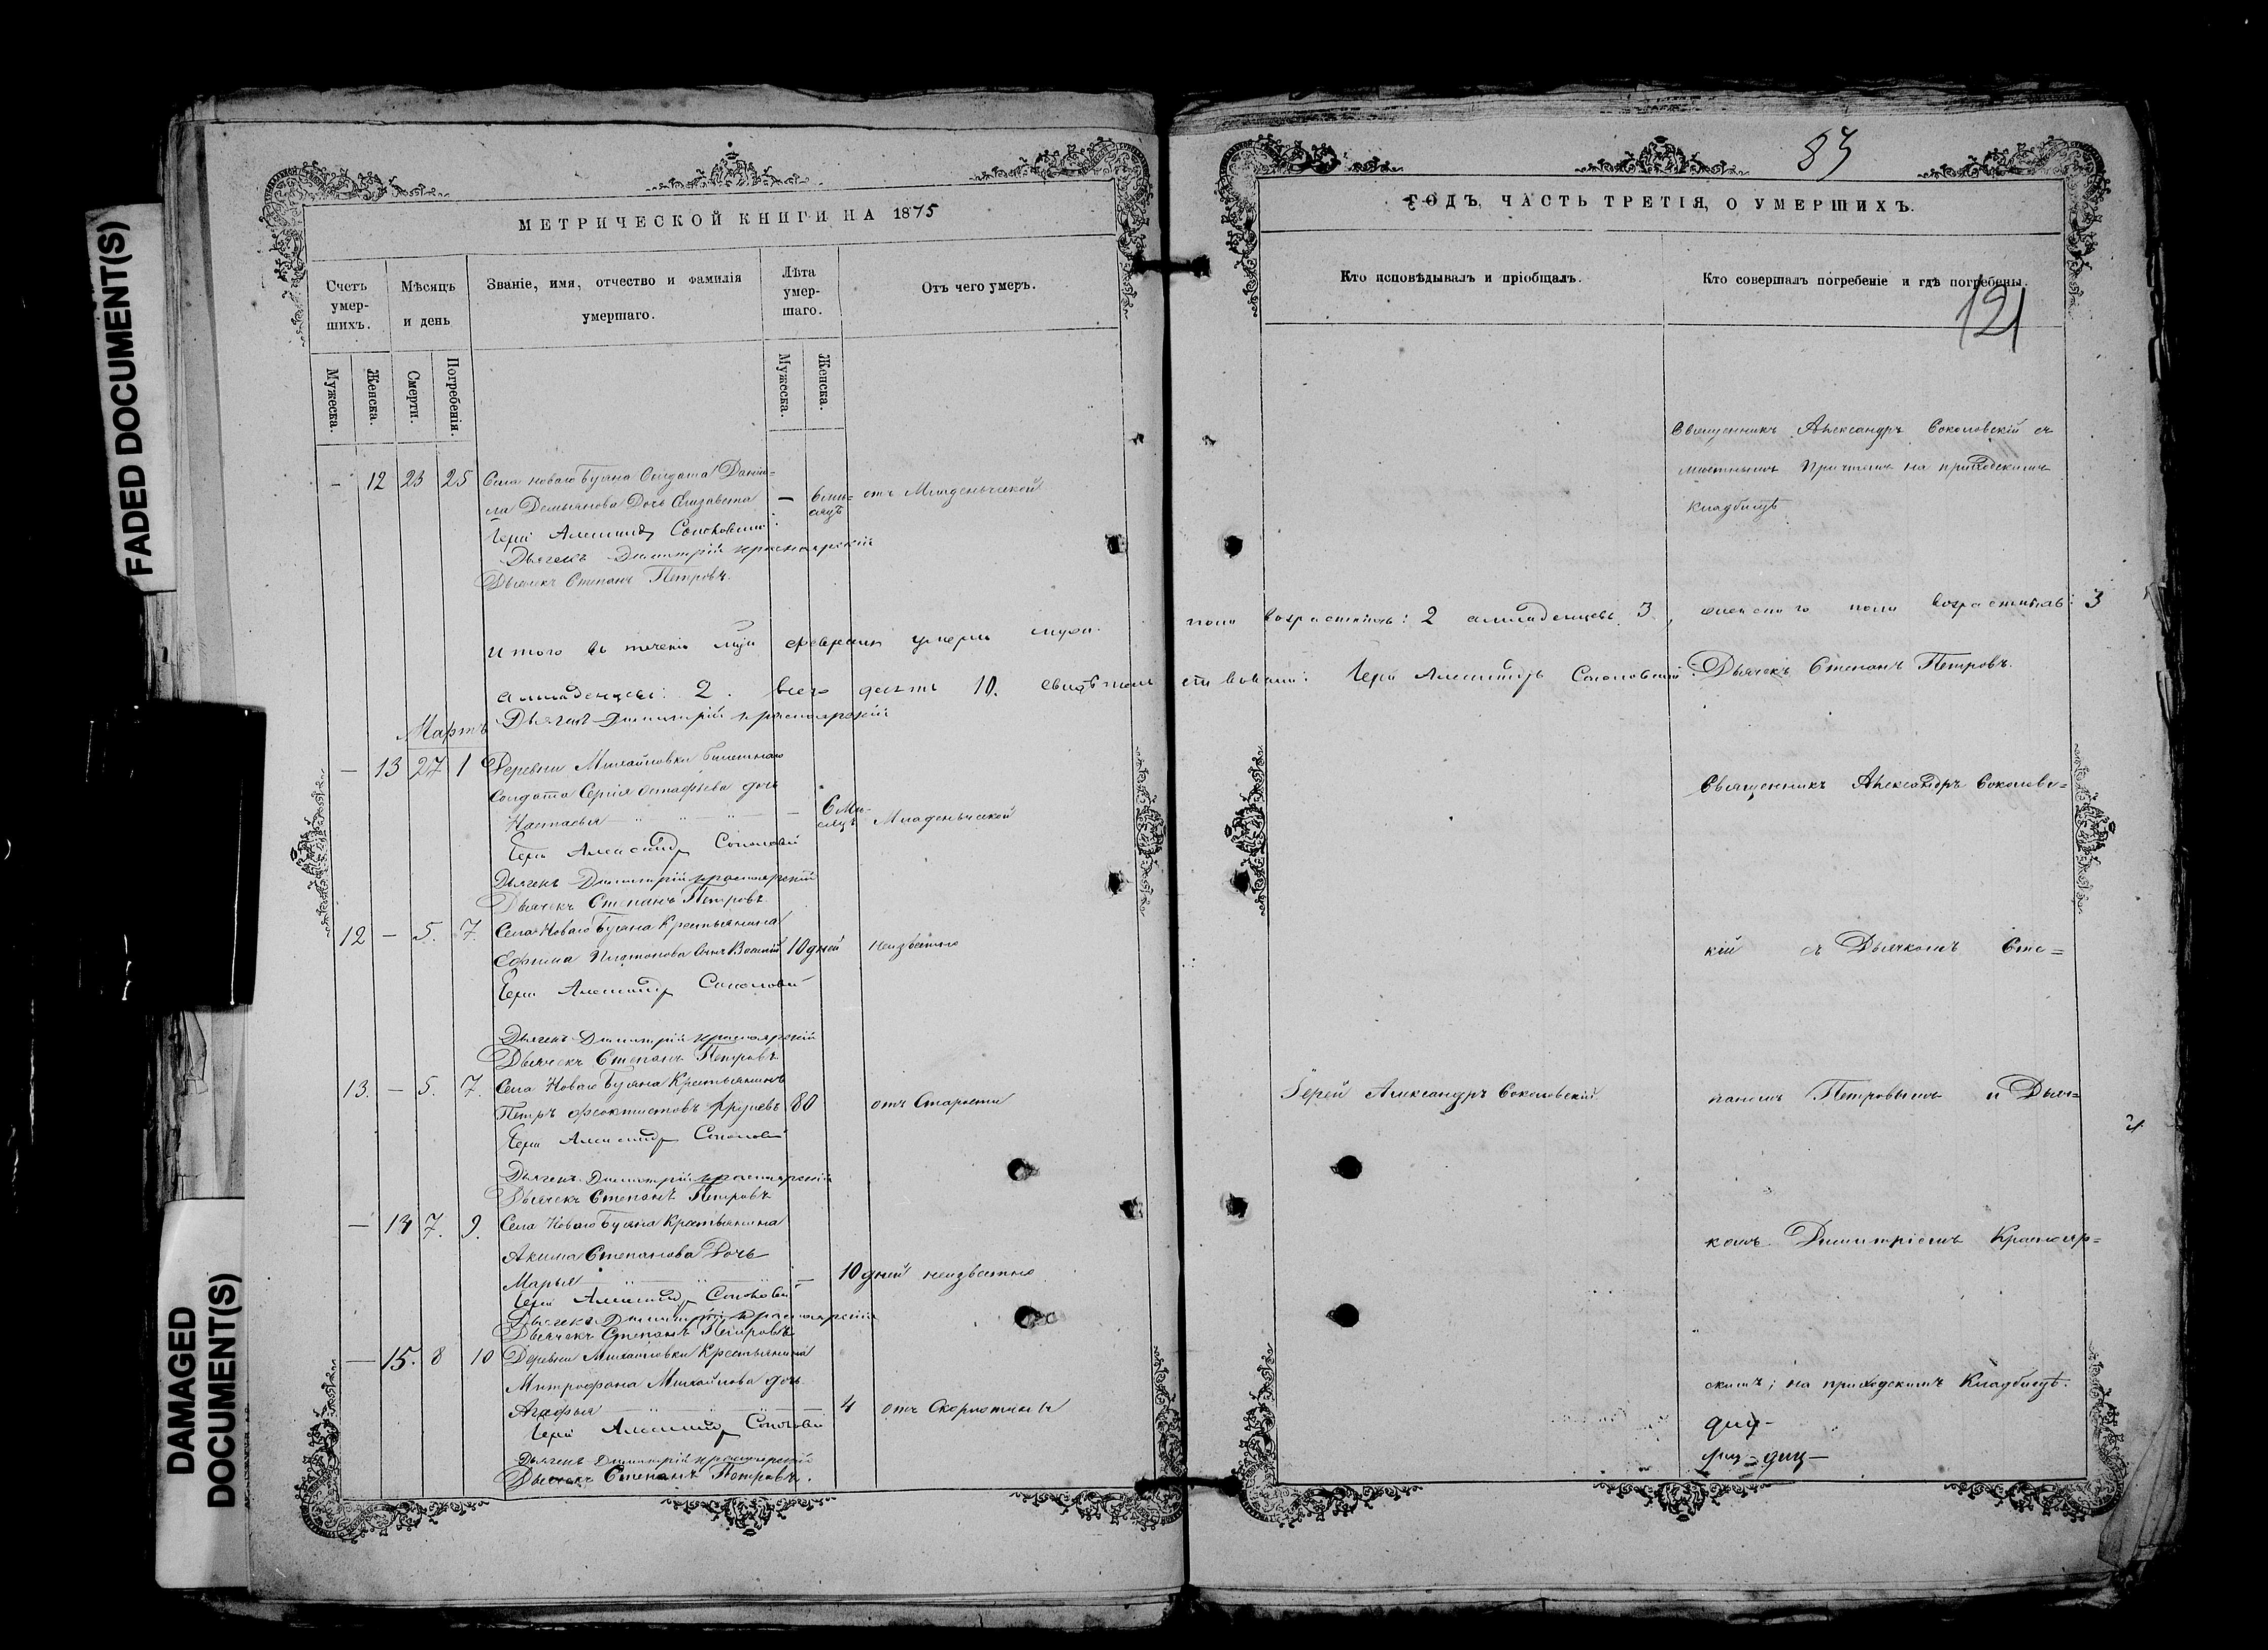 FADED DOCUMENT(S)
DAMAGED DOCUMENT(S)
МЕТРИЧЕСКОЙ КНИГИ НА 1875
Счетъ умер-шихъ.
Мѣсяцъ и день
Званіе, имя, отчество и фамилія умершаго.
Лѣта умер-шаго.
Отъ чего умеръ.
Мужеска.
Женска.
Смерти.
Погребенія.
Мужеска.
Женска.
— 12 23 25 Села Новаго Буяна Солдата Дани=
ла Демьянова Дочь Елизавета — 6 ми= отъ Младеньческой
сяцъ
Іерей Александръ Соколовскій
Дьячекъ Димитрій Красноярскій
Дьячекъ Степанъ Петровъ.
Итого въ теченіи февраля умерло муж.
а младенцевъ: 2. всего десять 10. свидѣтель
Дьячекъ Димитрій Красноярскій
Мартъ
— 13 27 1 Деревни Михайловки билетнаго
Солдата Сергія Остафьева дочь
Настасья — 6 Ми-
сяцъ Младеньческой
Іерей Александръ Соколовскій
Дьячекъ Димитрій Красноярскій
Дьячекъ Степанъ Петровъ
12 — 5. 7. Села Новаго Буяна Крестьянина
Ефима Платонова Сынъ Василій 10 дней неизвѣстно
Іерей Александръ Соколовскій
Дьячекъ Димитрій Красноярскій
Дьячекъ Степанъ Петровъ
13. — 5. 7. Села Новаго Буяна Крестьянинъ
Петръ Феоктистовъ 80 отъ Старости
Іерей Александръ Соколовскій
Дьячекъ Димитрій Красноярскій
Дьячекъ Степанъ Петровъ
— 14 7. 9. Села Новаго Буяна Крестьянина
Акима Степанова Дочь
Марья — 10 дней неизвестно
Іерей Александръ Соколовскій
Дьячекъ Димитрій Красноярскій
Дьячекъ Степанъ Петровъ
— 15. 8 10 Деревни Михайловки Крестьянина
Митрофана Михайлова дочь
Агафья — 4 отъ Скорлотины
Іерей Александръ Соколовскій
Дьячекъ Димитрій Красноярскій
Дьячекъ Степанъ Петровъ.
ГОДЪ, ЧАСТЬ ТРЕТІЯ, О УМЕРШИХЪ.
Кто исповѣдывалъ и пріобщалъ.
Кто совершалъ погребеніе и гдѣ погребены.
121
Священникъ Александръ Соколовскій съ
мѣстнымъ Причтомъ на приходскомъ
кладбищѣ
пола возрастныхъ: 2 а младенцевъ 3, женскаго пола возрастныхъ: 3
ствовали: Іерей Александръ Соколовскій Дьячекъ Степанъ Петровъ.
Священникъ Александръ Соколовс=
кій съ Дьячкомъ Сте=
Іерей Александръ Соколовскій
паномъ Петровымъ и Дьяч=
комъ Димитріемъ Краснояр=
скимъ; на приходскомъ Кладбищѣ.